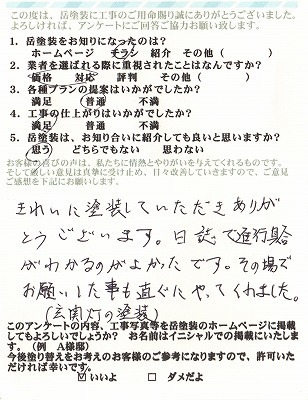 この度は、岳塗装に工事のご用命賜り誠にありがとうございました。
よろしければ、アンケートにご回答ご協力お願い致します。
1．岳塗装をお知りになったのは？
ホームページ　チラシ　紹介　その他（　　　）
2．業者を選ばれる際に重視されたことはなんですか？
価格　対応　評判　その他（　　　）
3．各種プランの提案はいかがでしたか？
満足　普通　不満
4．工事の仕上がりはいかがでしたか？
満足　普通　不満
5．岳塗装は、お知り合いに紹介しても良いと思いますか？
思う　どちらでもない　思わない
お客様の喜びの声は、私たちに情熱とやりがいを与えてくれるものです。
そして厳しい意見は真摯に受け止め、日々改善していきますので、ご意見
ご感想を下記にお願いします。
きれいに塗装していただきありが
とうございます。日誌で進行具合
がわかるのがよかったです。その場で
お願いした事も直ぐにやってくれました。
（玄関灯の塗装）
このアンケートの内容、工事写真等を岳塗装のホームページに掲載
してもよろしいでしょうか？　お名前はイニシャルでの掲載にいたしま
す。（例　A様邸）
今後塗り替えをお考えのお客様のご参考になりますので、許可いた
だければ幸いです。
☑ いいよ　□ ダメだよ